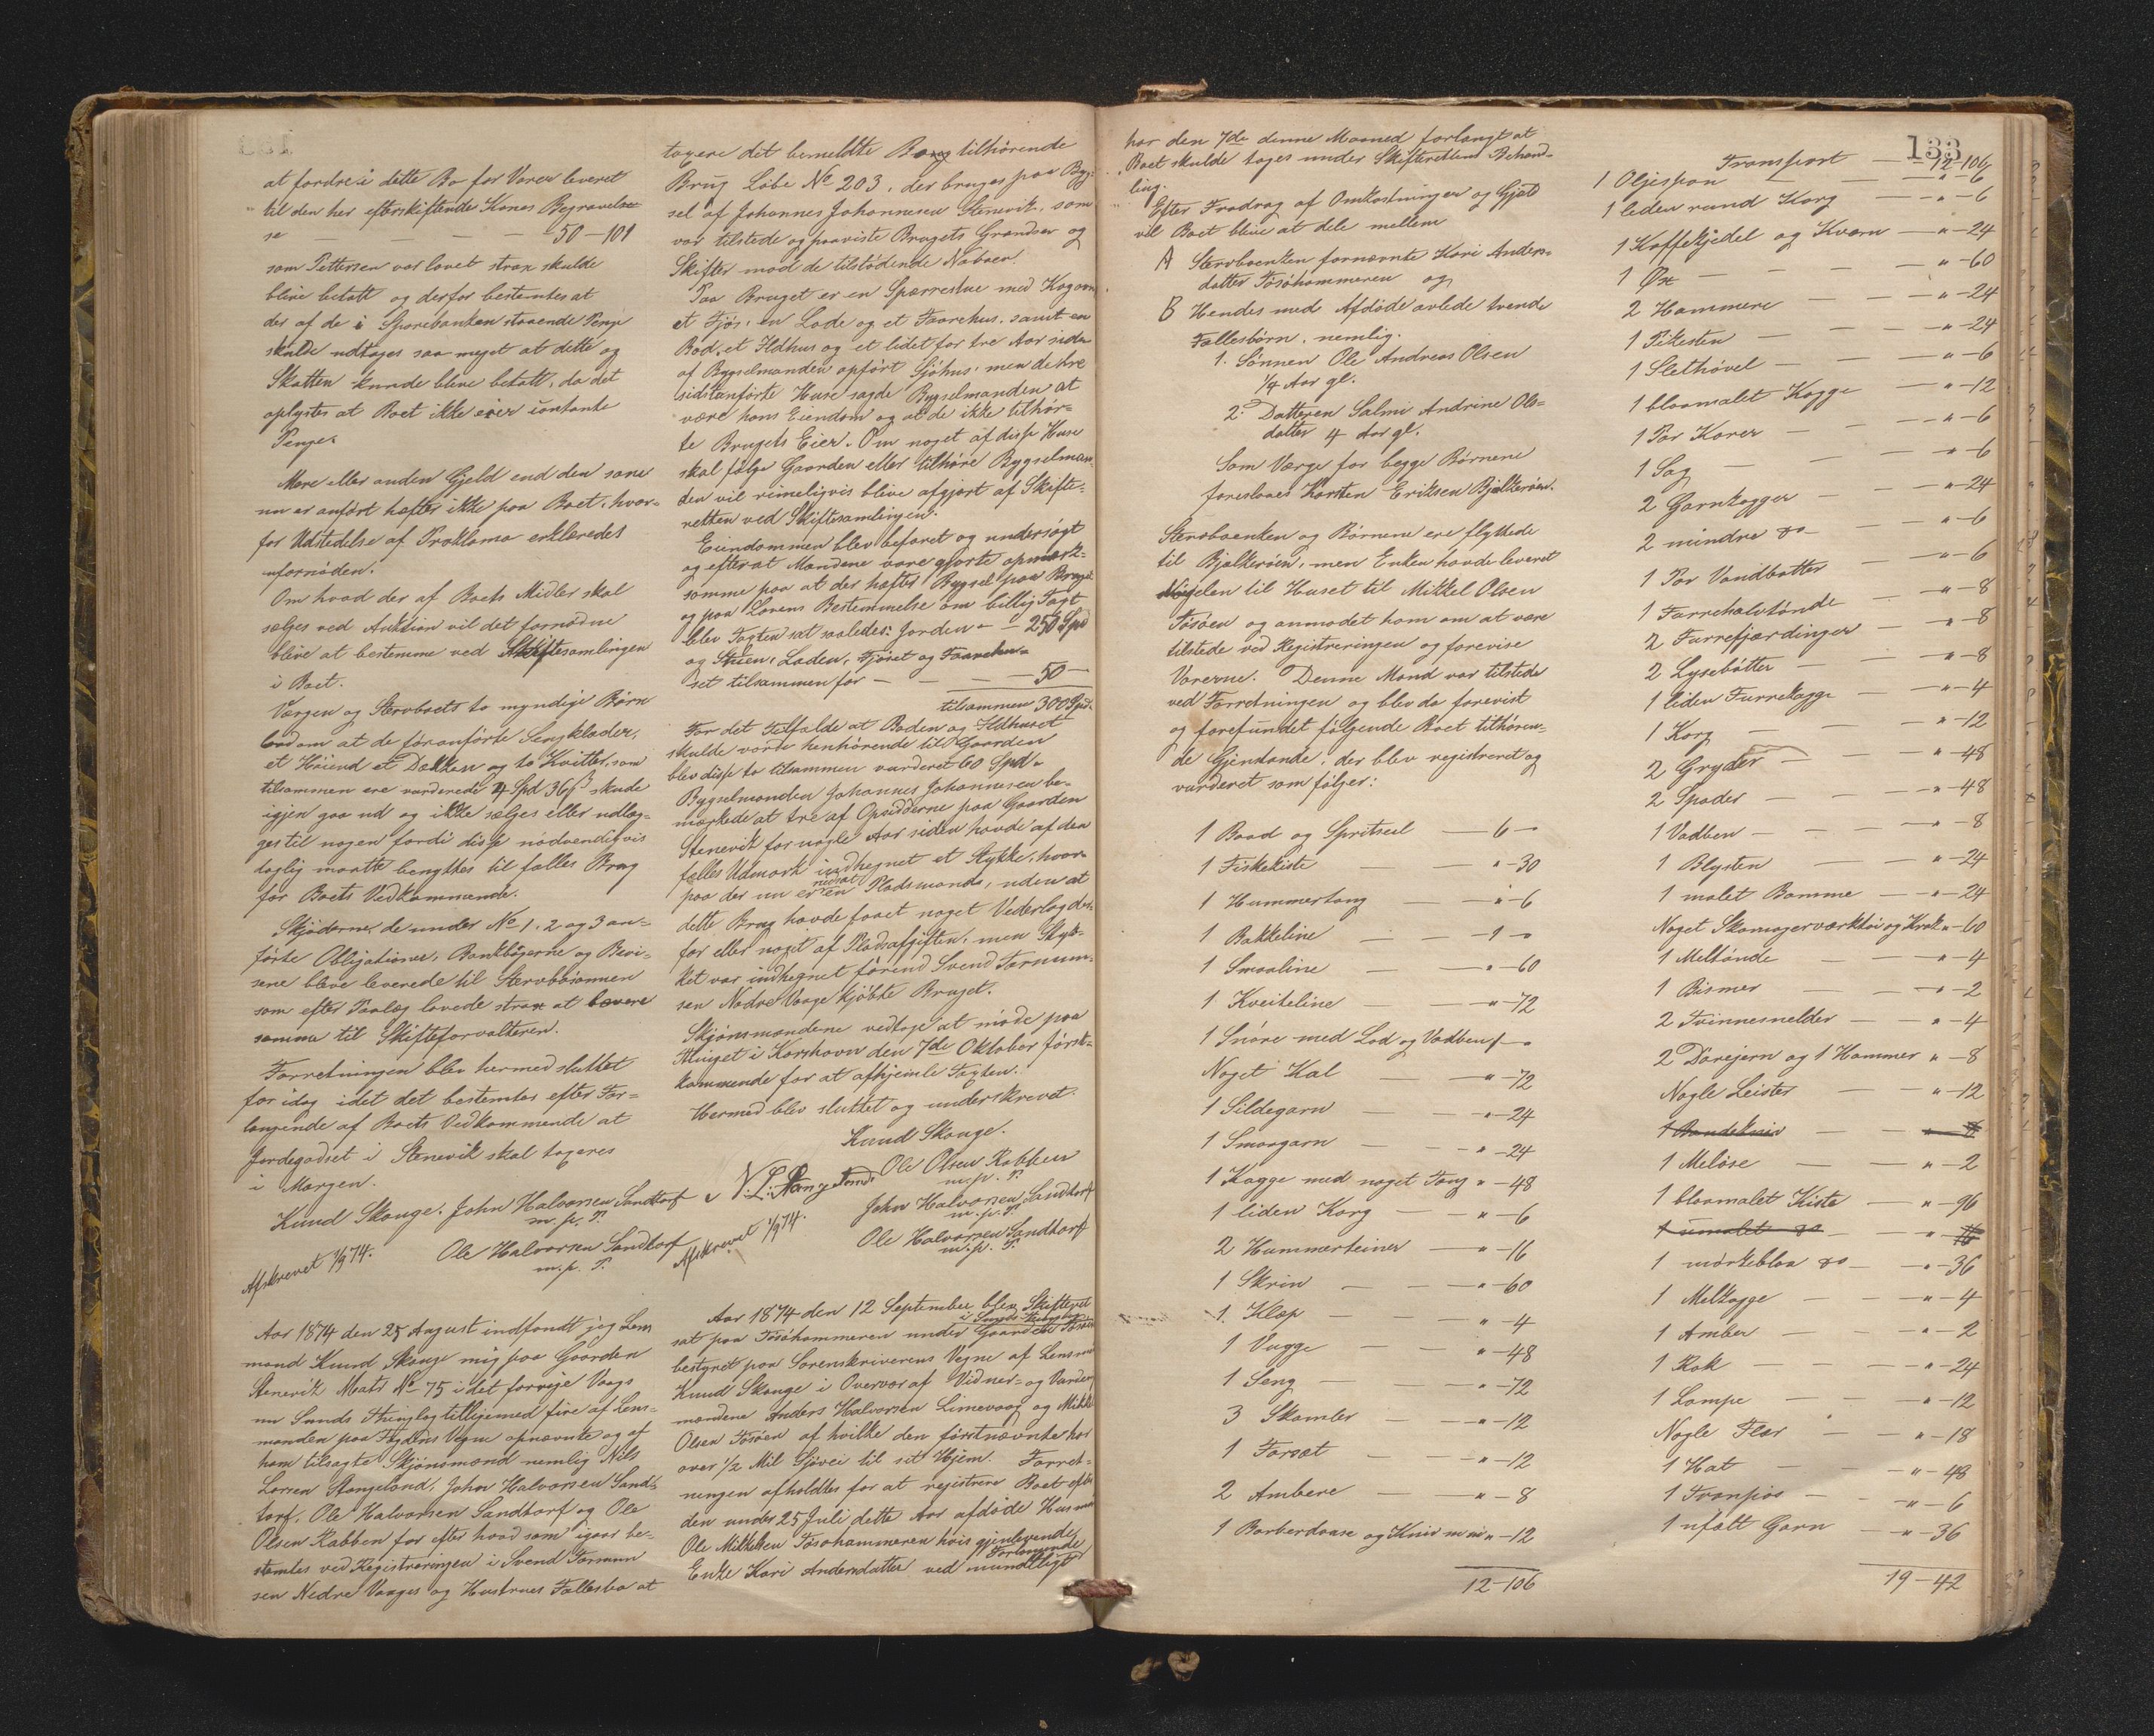 at fordre i dette Bo for Varer leveret
til den her efterskiftende Kones Begravelse
se — — — — 50–101
som Pettersen var lovet strax skulde
blive betalt og derfor bestemtes at
der af de i Sparebanken staaende Penge
skulde udtages saa meget at dette og
Skatten kunde blive betalt, da det
oplystes at Boet ikke eier contante
Penge.
Mere eller anden Gjeld end den som
nu er anført hæfter ikke paa Boet, hvor=
for Udstedelse af Proklama erklæredes
ufornøden.
Om hvad der af Boets Midler skal
sælges ved Auktion vil det fornødne
blive at bestemme ved Skiftesamlingen
i Boet.
Værgen og Stervboets to myndige Børn
bad om at de foranførte Sengklæder,
et Høiend et Dækken og to Kvitler, som
tilsammen ere vurderede 4 Spd 36 ß skude
igjen gaa ud og ikke sælges eller udlæg=
ges til nogen fordi disse nødvendigvis
daglig maatte benyttes til fælles Brug
for Boets Vedkommende.
Skjøderne, de under No 1, 2 og 3 an=
førte Obligationer, Bankbøgerne og Bevi=
sene bleve leverede til Stervbosønnen
som efter Paalæg lovede strax at levere
samme til Skifteforvalteren.
Forretningen blev hermed sluttet
for idag idet det bestemtes efter For=
langende af Boets Vedkommende at
Jordegodset i Stenevik skal taxeres
i Morgen.
Knud Skouge. John Halvorsen Sandtorf
m. p. P.
Ole Halvorsen Sandtorf
m. p. P.
Afskrevet 1/9 74.
Aar 1874 den 25 August indfandt jeg Lens
mand Knud Skouge mig paa Gaarden
Stenevik Matr No 75 i det forrige Vaags
nu Sunds Thinglag tilligemed fire af Lens=
manden paa Fogdens Vegne opnævnte og af
ham tilsagte Skjønsmænd nemlig Nils
Larsen Stangeland, John Halvorsen Sand=
torf, Ole Halvorsen Sandtorf og Ole
Olsen Rabben for efter hvad som igaar be=
stemtes ved Registreringen i Svend Tormun
sen Nedre Vaages og Hustrues Fællesbo at
taxere det bemeldte Bo tilhørende
Brug Løbe No 203, der bruges paa Byg=
sel af Johannes Johannesen Stenevik, som
var tilstede og paaviste Brugets Grændser og
Skifter mod de tilstødende Naboer.
Paa Bruget er en Spærrestue med Kogovn
et Fjøs, en Lade og et Faarehus, samt en
Bod, et Ildhus og et lidet for tre Aar siden
af Bygselmanden opført Sjøhus, men de tre
sidstanførte Huse sagde Bygselmanden at
være hans Eiendom og at de ikke tilhør=
te Brugets Eier. Om noget af disse Huse
skal følge Gaarden eller tilhøre Bygselman
den vil rimeligvis blive afgjort af Skifte=
retten ved Skiftesamlingen.
Eiendommen blev befaret og undersøgt
og efterat Mændene vare gjorte opmærk=
somme paa at der hæfter Bygsel paa Bruget
og paa Lovens Bestemmelse om billig Taxt
blev Taxten sat saaledes: Jorden — 250 Spd
og Stuen, Laden, Fjøset og Faarehu=
set tilsammen for — — — 50 —
tilsammen 300 Spd.
For det Tilfælde at Boden og Ildhuset
skulde være henhørende til Gaarden
blev disse to tilsammen vurderet 60 Spd.
Bygselmanden Johannes Johannesen be=
mærkede at tre af Opsidderne paa Gaarden
Stenevik for nogle Aar siden havde af den
fælles Udmark indhegnet et Stykke, hvor=
paa der nu er nedsat en Pladsmand, uden at
dette Brug havde faaet noget Vederlag der=
for eller noget af Pladsafgiften, men Styk=
ket var indhegnet førend Svend Tormun=
sen Nedre Vaage kjøbte Bruget.
Skjønsmændene vedtoge at møde paa
Thinget i Korshavn den 7de Oktober først=
kommende for at afhjemle Taxten.
Hermed blev sluttet og underskrevet.
Knud Skouge.
N. L. Stangeland. Ole Olsen Rabben
m. p. P.
John Halvorsen Sandtorf
m. p. P.
Ole Halvorsen Sandtorf
m. p. P.
Afskrevet 1/9 74.
Aar 1874 den 12 September blev Skifteret
sat paa Tosøhammeren under Gaarden Tosøen i Sunds Thinglag
bestyret paa Sorenskriverens Vegne af Lensmand
Knud Skouge i Overvær af Vidner= og Vurder
mændene Anders Halvorsen Limevaag og Mikkel
Olsen Tosøen af hvilke den førstnævnte har
over 1/2 Mil Sjøvei til sit Hjem. Forret=
ningen afholdtes for at registrere Boet efter
den under 25 Juli dette Aar afdøde Husmand
Ole Mikkelsen Tosøhammeren hvis gjenlevende
Enke Kari Andersdatter ved mundtligt Forlangende
har den 7de denne Maaned forlangt at
Boet skulde tages under Skifterettens Behand=
ling.
Efter Fradrag af Omkostninger og Gjæld
vil Boet blive at dele mellem
A Stervboenken fornævnte Kari Anders=
datter Tosøhammeren og
B Hendes med Afdøde avlede tvende
Fællesbørn, nemlig:
1. Sønnen Ole Andreas Olsen
1/4 Aar gl.
2. Datteren Salmi Andrine Ols=
datter 4 Aar gl.
Som Værge for begge Børnene
foreslaaes Karsten Eriksen Bjelkerøen.
Stervboenken og Børnene ere flyttede
til Bjelkerøen, men Enken havde leveret
Nøgelen til Huset til Mikkel Olsen
Tosøen og anmodet ham om at være
tilstede ved Registreringen og forevise
Varerne. Denne Mand var tilstede
ved Forretningen og blev da forevist
og forefundet følgende Boet tilhøren=
de Gjenstande, der blev registreret og
vurderet som følger:
1 Baad og Spritseil — 6 —
1 Fiskekiste — " – 30
1 Hummertang — " – 6
1 Bakkeline — — 1 –
1 Smaaline — " – 60
1 Kveiteline — " – 72
1 Snøre med Lod og Vadben 1 –
Noget Kal — " – 72
1 Sildegarn — " – 24
1 Smaagarn — " – 24
1 Kagge med noget Taug " – 48
1 liden Korg — " – 6
2 Hummerteiner — " – 16
1 Skrin — — " – 60
1 Klep — " – 4
1 Vugge — " – 48
1 Seng — " – 72
3 Skamler — " – 12
1 Forsæt — " – 12
2 Ambere — " – 8
1 Barberdaase og Kniv m m " – 12
12–106
133
Transport — 12–106
1 Oljespan — " – 6
1 liden rund Korg — " – 6
1 Kaffekjedel og Kværn — " – 24
1 Øx — — " – 60
2 Hammere — " – 24
1 Pikesten — " – 24
1 Slethøvel — " – 6
1 blaamalet Kagge — " – 12
1 Par Karer — " – 6
1 Sag — " – 6
2 Garnkagger — " – 24
2 mindre do — " – 6
1 Par Vandbøtter — " – 6
1 Turrehalvtønde — " – 8
2 Turrefjærdinger — " – 8
2 Lysebøtter — " – 8
1 liden Turrekagge — " – 4
1 Korg — " – 12
2 Gryder — " – 48
2 Spader — " – 48
1 Vadben — " – 8
1 Blysten — " – 24
1 malet Bomme — " – 24
Noget Skomagerværktøi og Krak " – 60
1 Meltønde — " – 4
1 Bismer — " – 2
2 Tvinnesnelder — " – 4
2 Dørejern og 1 Hammer " – 8
Nogle Leister — " – 12
1 Meløse — " – 2
1 blaamalet Kiste — " – 96
1 umalet do —
1 mørkeblaa do — " – 36
1 Melkagge — " – 4
1 Amber — " – 2
1 Rok — " – 24
1 Lampe — " – 12
Nogle Flær — " – 18
1 Hat — " – 48
1 Tranpøs — " – 6
1 ufælt Garn — " – 36
19–42